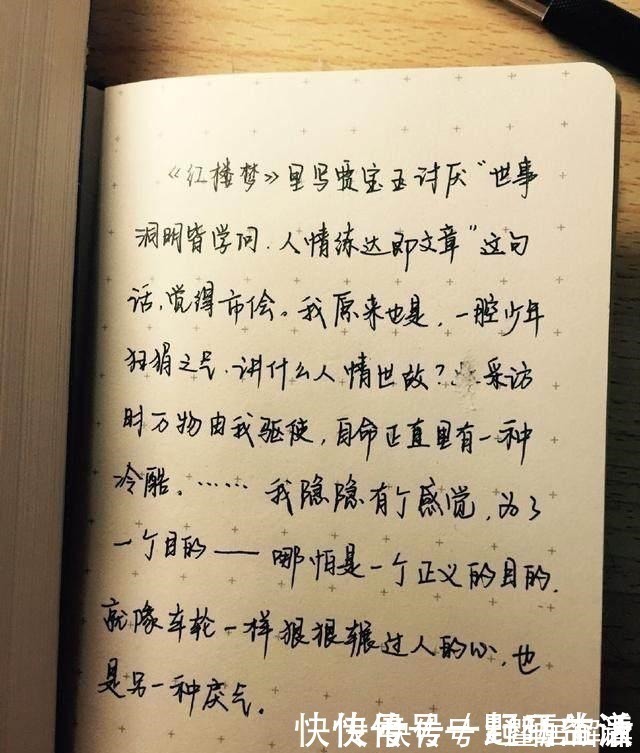 《红楼梦》里写贾宝玉讨厌“世事
洞明皆学问.人情练达即文章”这句
话,觉得市侩。我原来也是,一腔少年
狂狷之气、讲什么人情世故?采访
时万物由我驱使,自命正直里有一种
冷酷。……我隐隐有个感觉,为了
一个目的——哪怕是一个正义的目的.
就像车轮一样狠狠辗过人的心,也
是另一种戾气。
快传号/